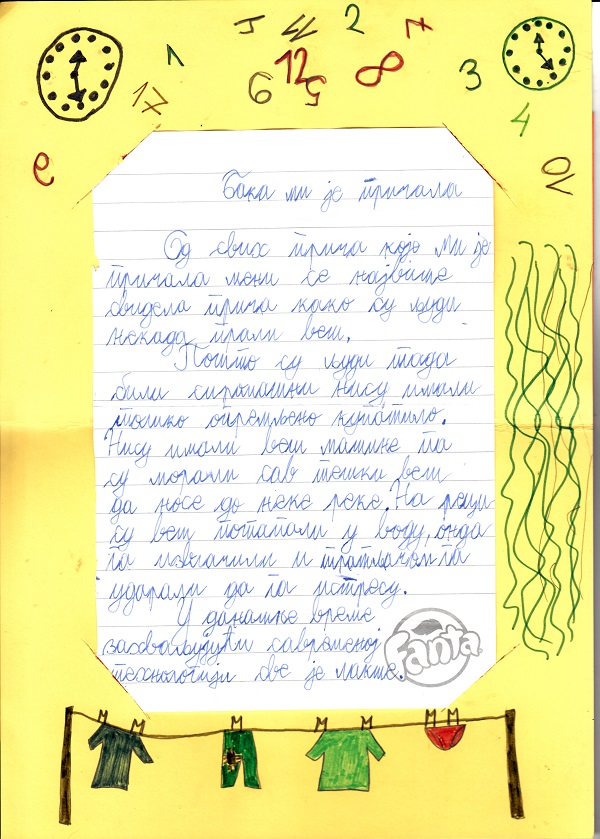 11 2 7
1 12 8 3
17 6 5 4
9 10
Бака ми је причала
Од свих прича које ми је
причала мени се највише
свидела прича како су људи
некада прали веш.
Пошто су људи тада
били сиромашни нису имали
толико опремљено купатило.
Нису имали веш машине па
су морали сав тешки веш
да носе до неке реке. На реци
су веш потапали у воду, онда
га извлачили и пратљачом га
ударали да га истресу.
У данашње време
захваљујући савременој
технологији све је лакше.
Fanta